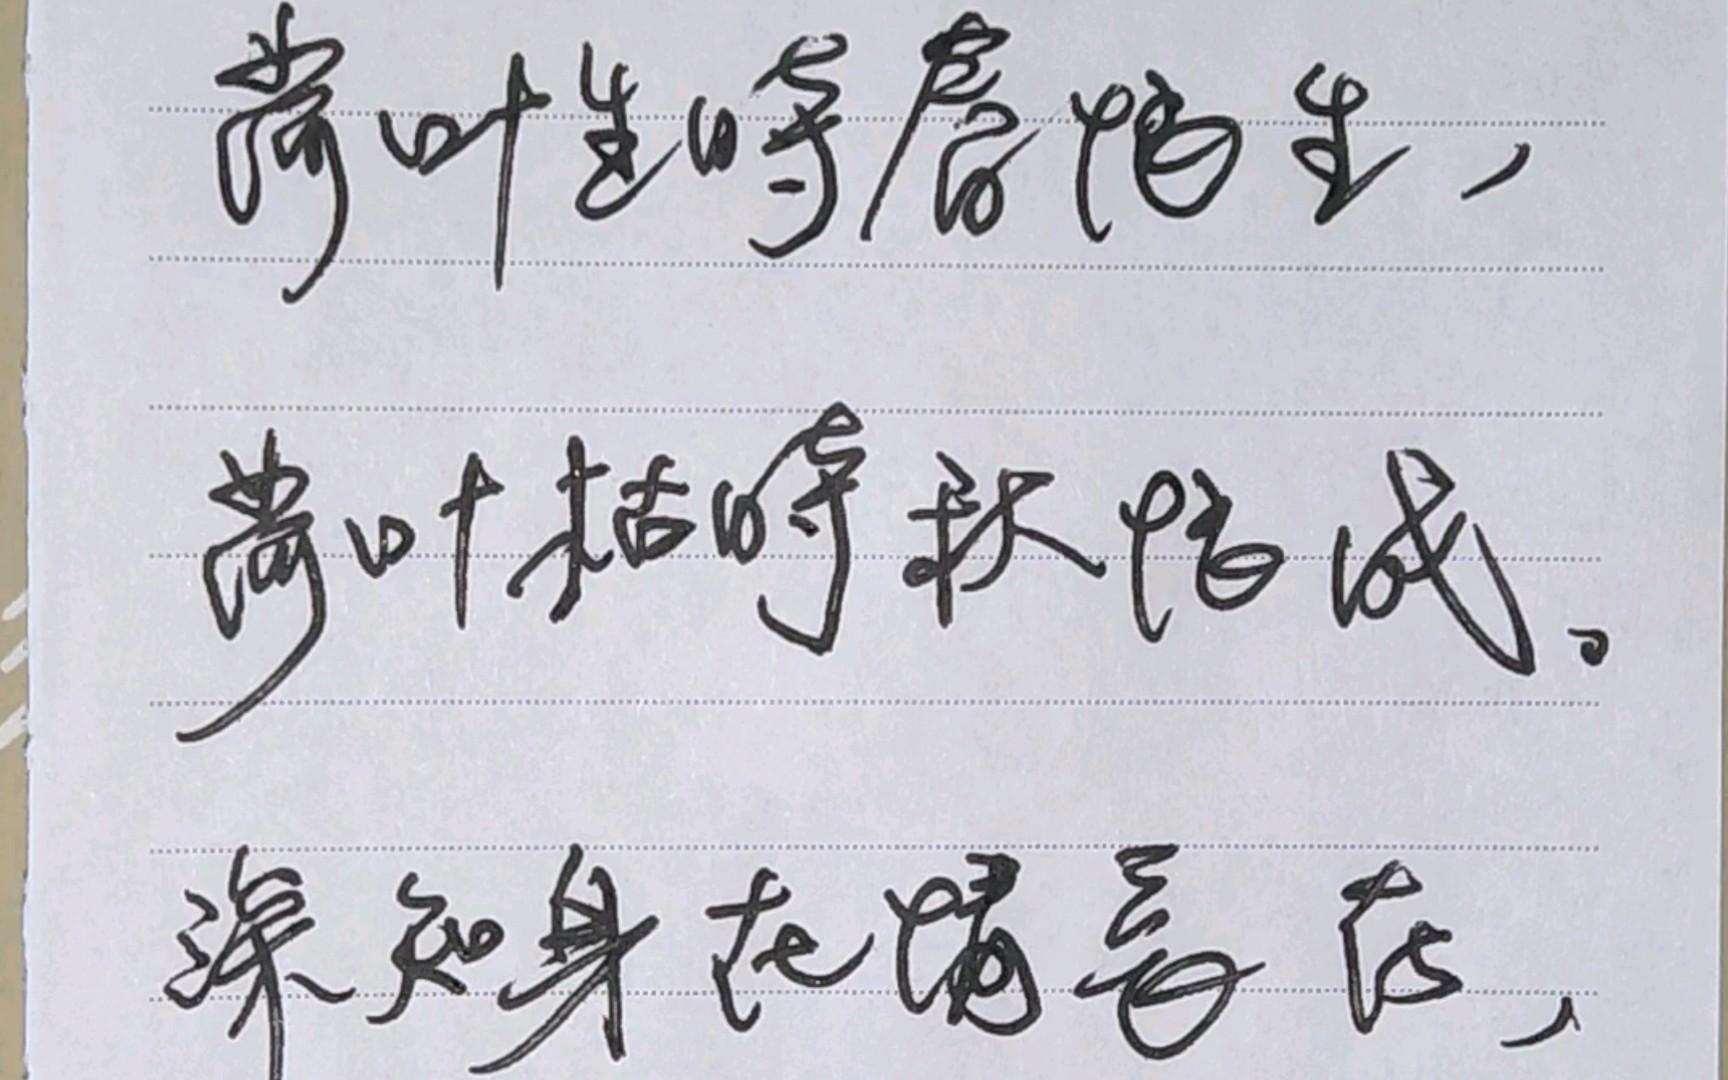 荷叶生時春恨生，
荷叶枯時秋恨成。
深知身在情長在，